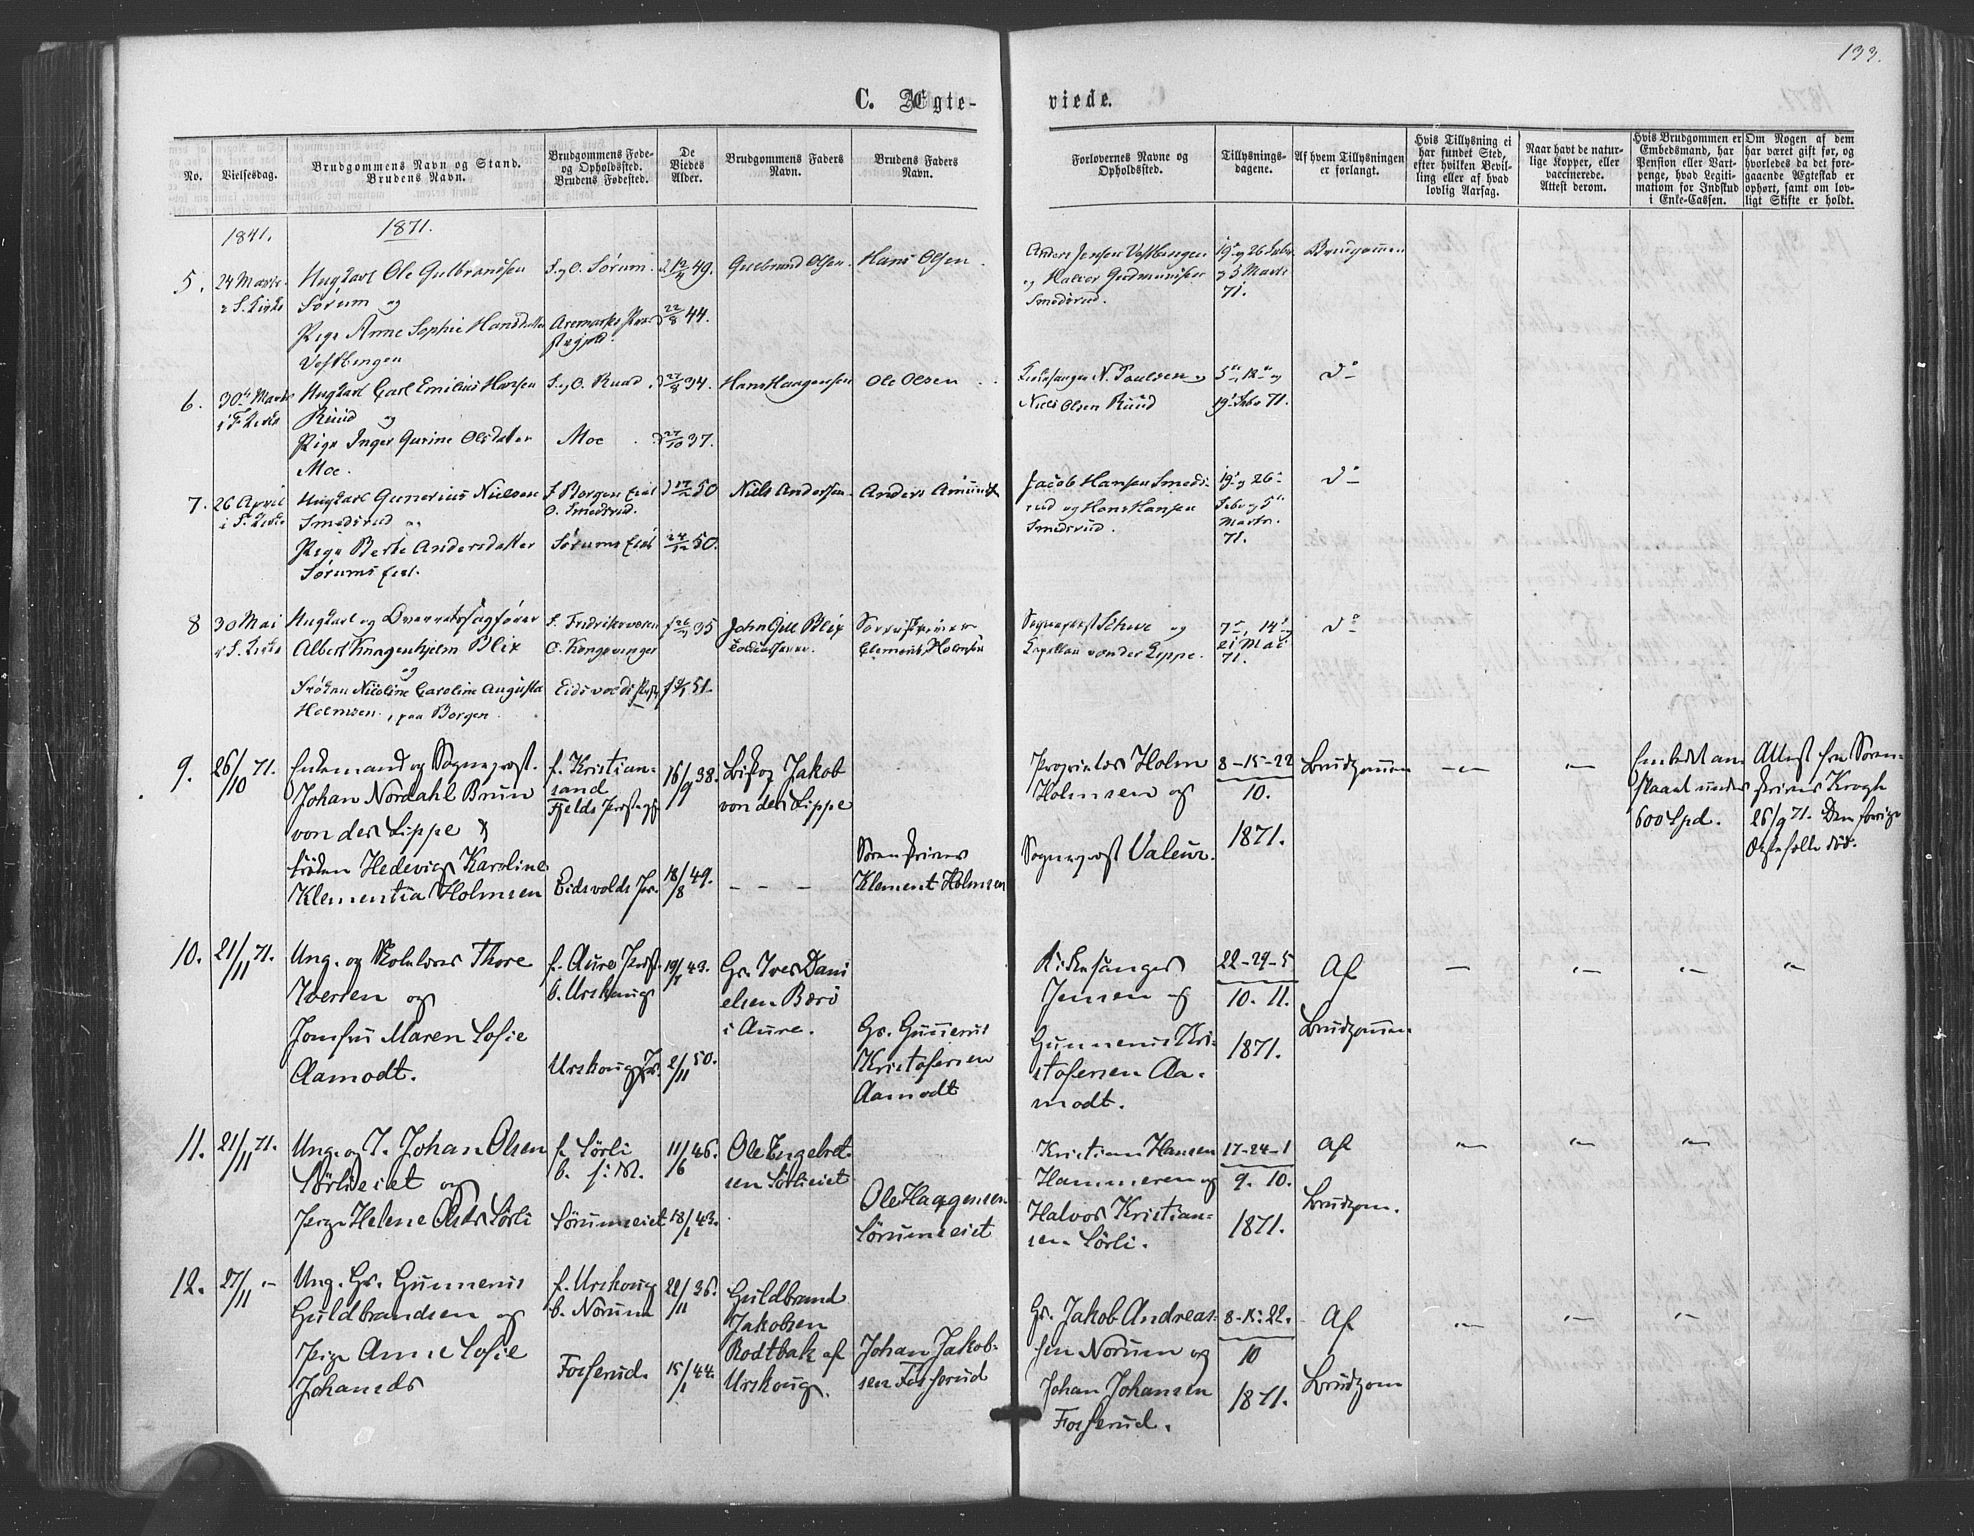 133.
C. Ægte-
viede.
No.
Vielsesdag.
Brudgommens Navn og Stand.
Brudens Navn.
Brudgommens Føde-
og Opholdssted.
Brudens Fødested.
De
Viedes
Alder.
Brudgommens Faders
Navn.
Brudens Faders
Navn.
Forlovernes Navne og
Opholdssted.
Tillysnings-
dagene.
Af hvem Tillysningen
er forlangt.
Hvis Tillysning ei
har fundet Sted,
efter hvilken Bevil-
ling eller af hvad
lovlig Aarsag.
Naar havt de natur-
lige Kopper, eller
vaccinerede.
Attest derom.
Hvis Brudgommen er
Embedsmand, har
Pension eller Vart-
penge, hvad Legiti-
mation for Indskud
i Enke-Cassen.
Om Nogen af dem
har været gift før, og
hvorledes da det fore-
gaaende Ægteskab er
ophørt, samt om lov-
ligt Skifte er holdt.
1841.
1871.
5.
24 Marts
Ungkarl Ole Gulbrandsen
Sørum og
Pige Anne Sophie Hansdatter
Vestbengen
F. og O. Sørum.
Aremarks
12/4 49.
22/8 44.
Gulbrand Olsen.
Hans Olsen
Anders Jensen Vestbengen
og Halvor Gudmundsen
Smedsrud.
19 og 26 Febr
og 5 Marts
71.
Brudgommen
6.
30te Marts
Ungkarl Carl Emilius Hansen
Ruud og
Pige Inger Gurine Olsdatter
Moe.
F. og O. Ruud
Moe
27/8 34.
27/10 37.
Hans Haagensen
Ole Olsen
Kirkesanger N. Paulsen og
Niels Olsen Ruud
5te, 12te og
19 Febr 71.
Do
7.
26 April
Ungkarl Gunerius Nielsen
Smedsrud og
Pige Berte Andersdatter
Sørums Eiet.
F. Borgen Eiet
O. Smedsrud.
Sørums Eiet
50
24/12 50.
Niels Andersen
Anders Amunds
Jacob Hansen Smeds-
rud og Hans Hansen
Smedsrud.
19 og 26
Febr og 5te
Marts.
71.
Do
8
30 Mai
Ungkarl og Overretssagfører
Albert Knagenhjelm Blix
og
Frøken Nicoline Caroline Augusta
Holmsen, paa Borgen
F. Fredriksværn
O. Kongsvinger
Eidsvolds
35
51.
John Gill Blix
Sorenskriver
Clement Holmsen
Sogneprest Schive og
Capellan von der Lippe.
7de, 14de og
21 Mai
71.
Do
9.
26/10 71.
Enkemand og Sogneprest.
Johan Nordahl Brun
von der Lippe &
Frøken Hedevig Karoline
Klementia Holmsen
f. Kristian-
sand
Fjelds Prestegj.
Eidsvolds Pr.
16/9 38.
18/8 49.
Biskop Jakob
von der Lippe
– – –
Sorenskriver
Klement Holmsen
Proprietær Holm
Holmsen og
Sogneprest Valeur.
8-15-22
10.
1871.
Brudgommen
-"-
"-
Embedet an-
slaaet under
600 Spd.
Attest fra Soren-
skriver Krogh
26/9 71. Den forrige
Ægtefælle død.
10.
21/11 71.
Ung. og Skolelærer Thore
Iversen og
Jomfru Maren Sofie
Aamodt.
f. Aure Prst.
b. Urskoug
Urskougs Pr.
19/7 43.
2/11 50.
Gr. Iver Dani
elsen Barø
i Aure.
Gr. Gunerius
Kristofersen
Aamodt
Kirkesanger
Jensen og
Gunnerius Kri-
stofersen Aa-
modt.
22-29-5
10. 11.
1871.
Af
Brudgommen
–
"-
"-
"-
11.
21/11 71.
Ung. og I. Johan Olsen
Sørlieiet og
Pige Helene Olsdr Sørli
f. Sørli
b. s: St.
Sørumseiet
11/6 46.
18/1 43.
Ole Engebret-
sen Sørlieiet
Ole Haagensen
Sørumseiet
Kristian Hansen
Hammeren og
Halvor Kristian-
sen Sørli.
17-24-1
9. 10.
1871.
Af
Brudgom.
"-
"-
"-
12.
27/11 "-
Ung. Gr. Gunnerius
Guldbrandsen og
Pige Anne Sofie
Johansds
f. Urskoug
b. Norum
Fosserud.
22/11 36.
15/1 44.
Guldbrand
Jakobsen
Rodtbak af
Urskoug.
Johan Jakob-
sen Fosserud
Gr. Jakob Andreas-
sen Norum og
Johan Johansen
Fosserud.
8-15-22.
10
1871.
Af
Brudgom
"-
"-
"-